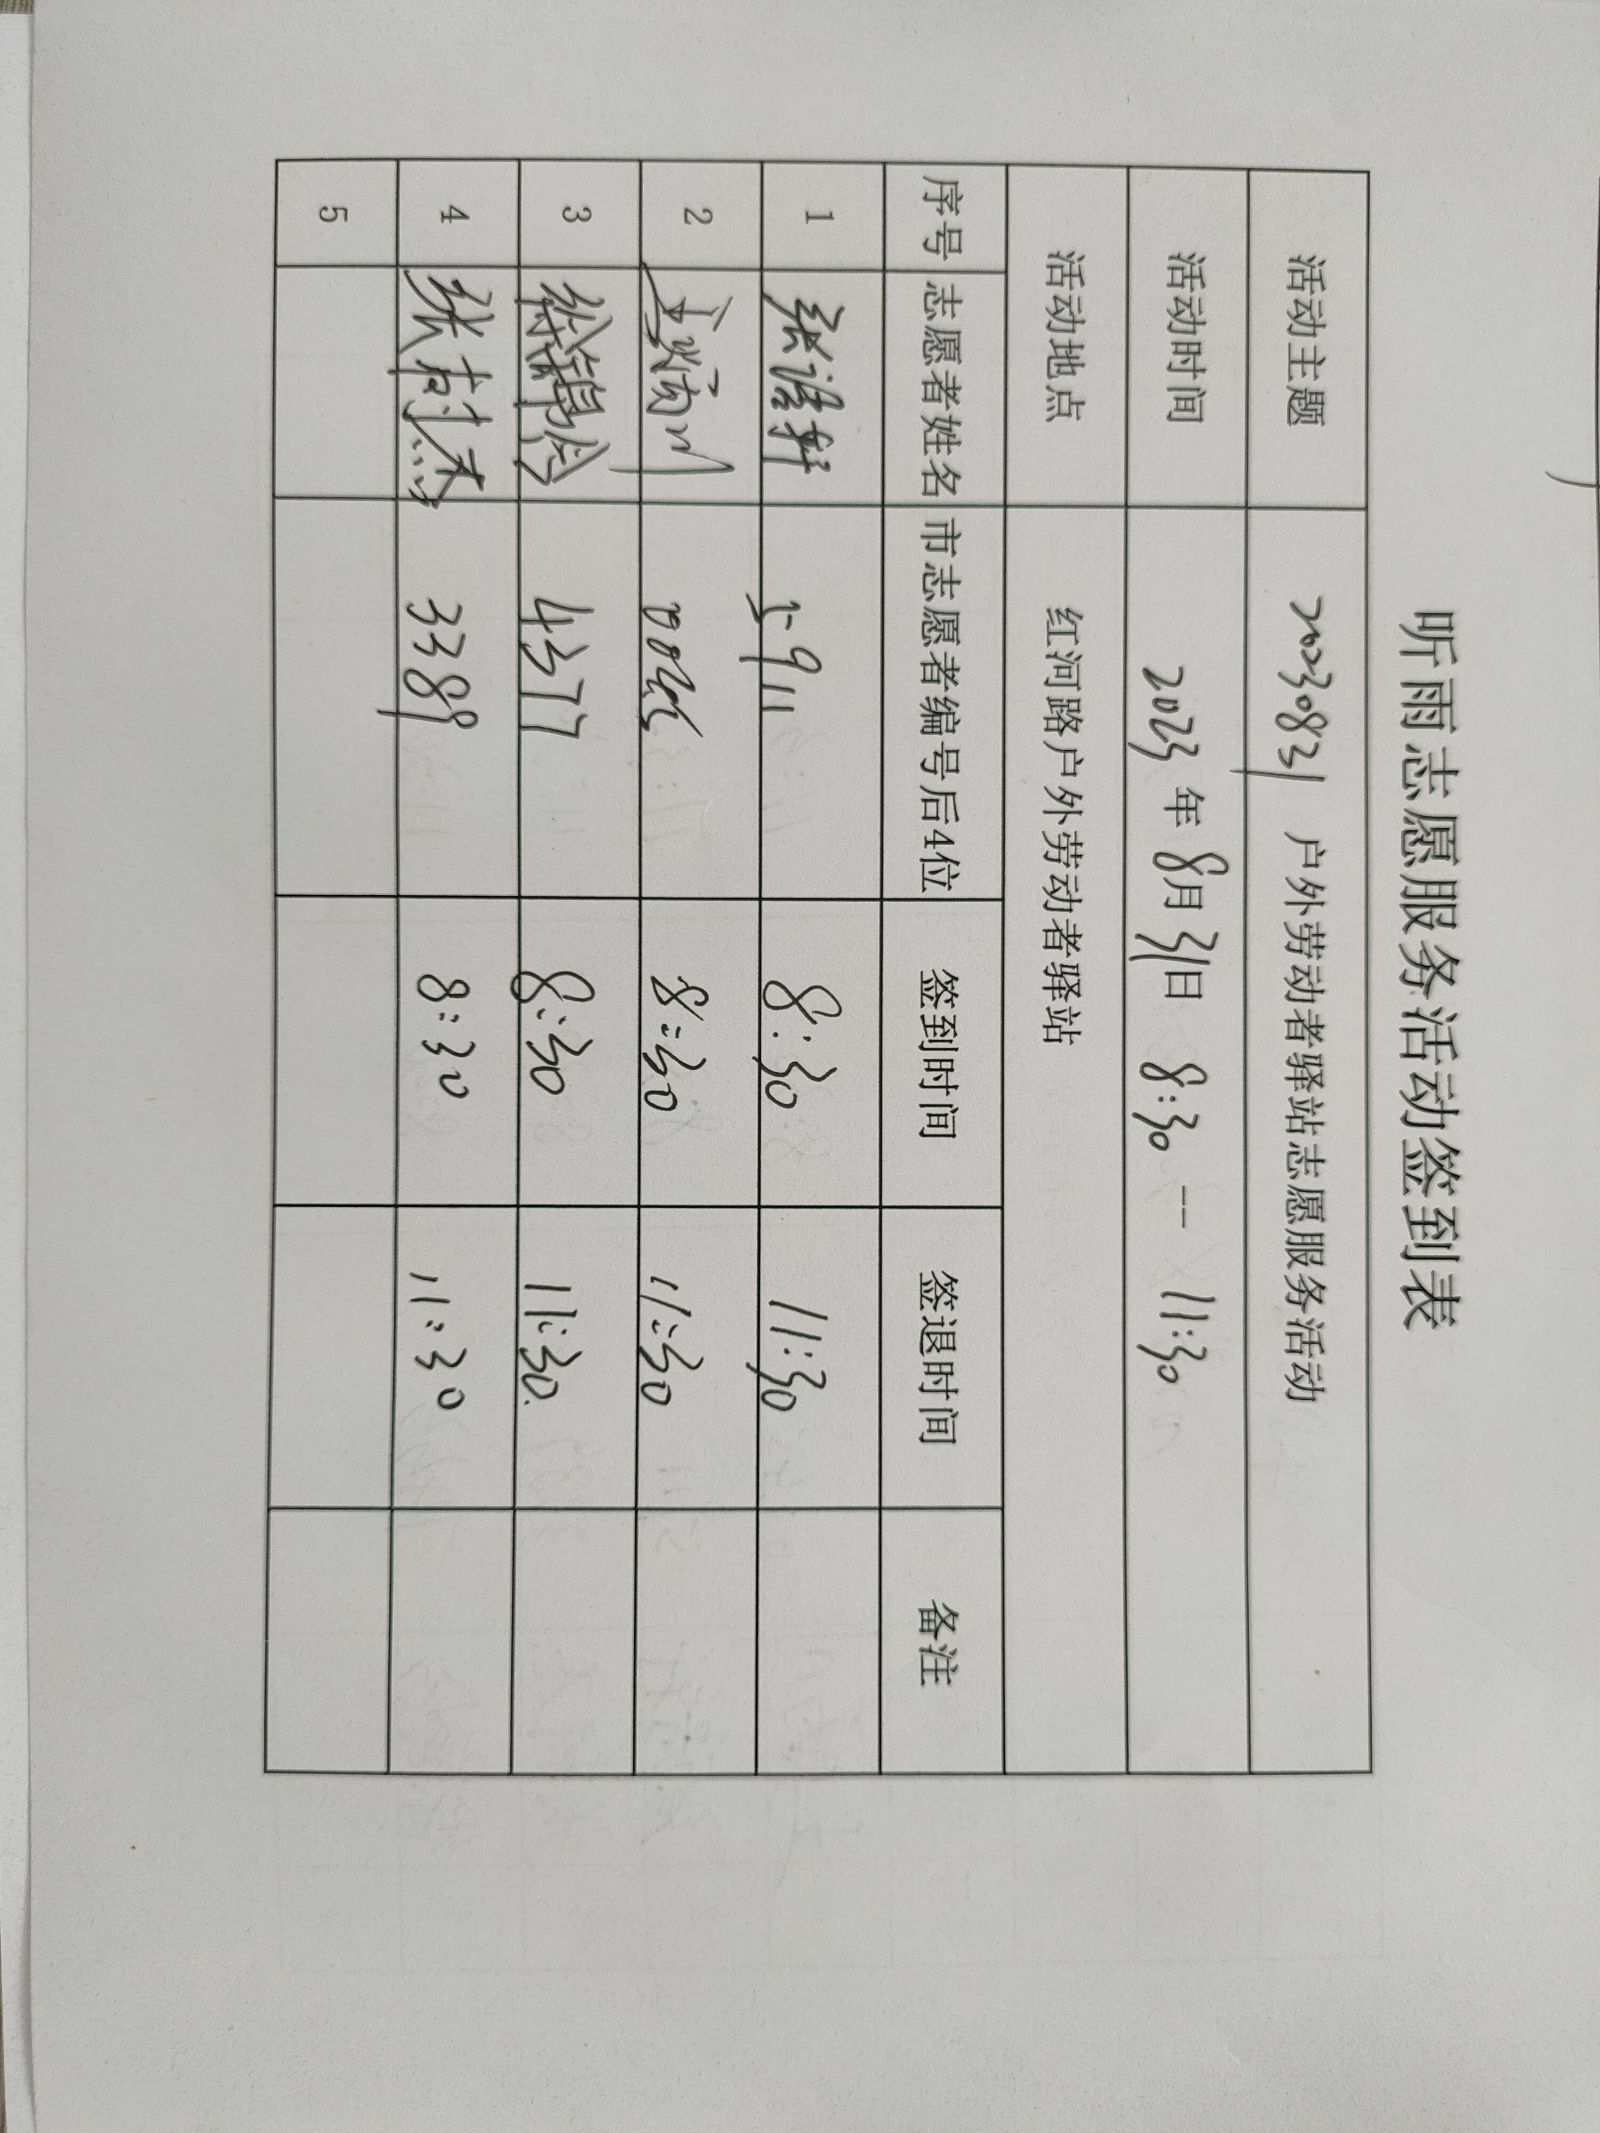 听雨志愿服务活动签到表
活动主题 20230831 户外劳动者驿站志愿服务活动
活动时间 2023年8月31日 8:30 -- 11:30
活动地点 红河路户外劳动者驿站
序号 志愿者姓名 市志愿者编号后4位 签到时间 签退时间 备注
1 张浩轩 5911 8:30 11:30
2 8:30 11:30
3 4377 8:30 11:30
4 张树杰 3389 8:30 11:30
5